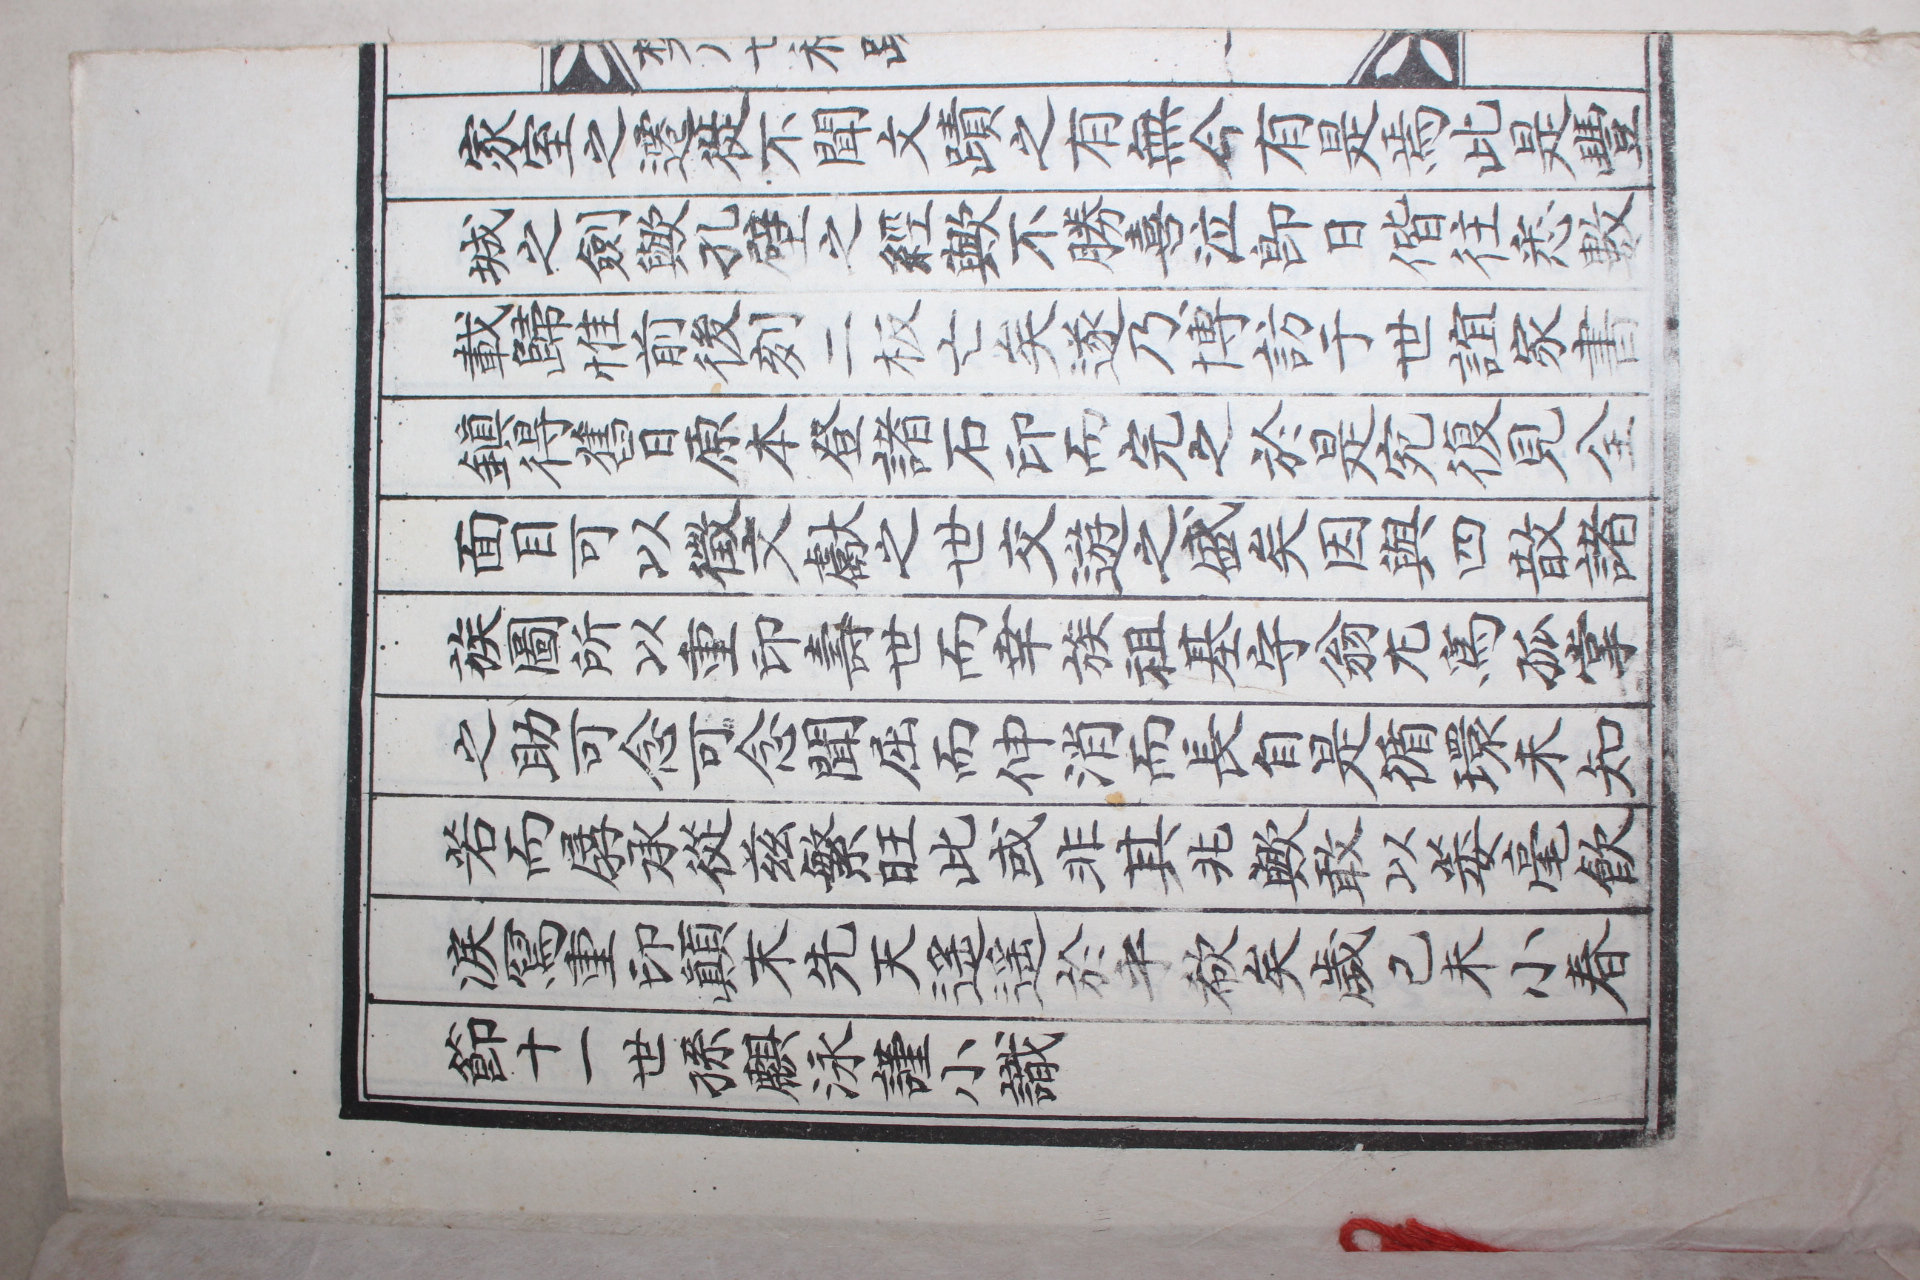 家室之遷徙不聞文蹟之有無今有是焉此是豐
城之劍歟孔壁之經歟不勝喜泣卽日偕往悉數
載歸惟前後刻二板亡矣遂乃博訪于世誼家書
鎭得舊日原本登諸石印而完之於是宛復見全
面目可以徵文獻之世交遊之盛矣因與四散諸
族圖所以重印壽世而幸族祖基宇翁尤爲孤掌
之助可念可念聞屈而伸消而長自是循環未知
若而孱承從玆繁旺此或非其兆歟敢以蒌毫飮
淚寫重印顚末先天遥遥於乎欷矣歲己未小春
節十一世孫麒泳謹小識